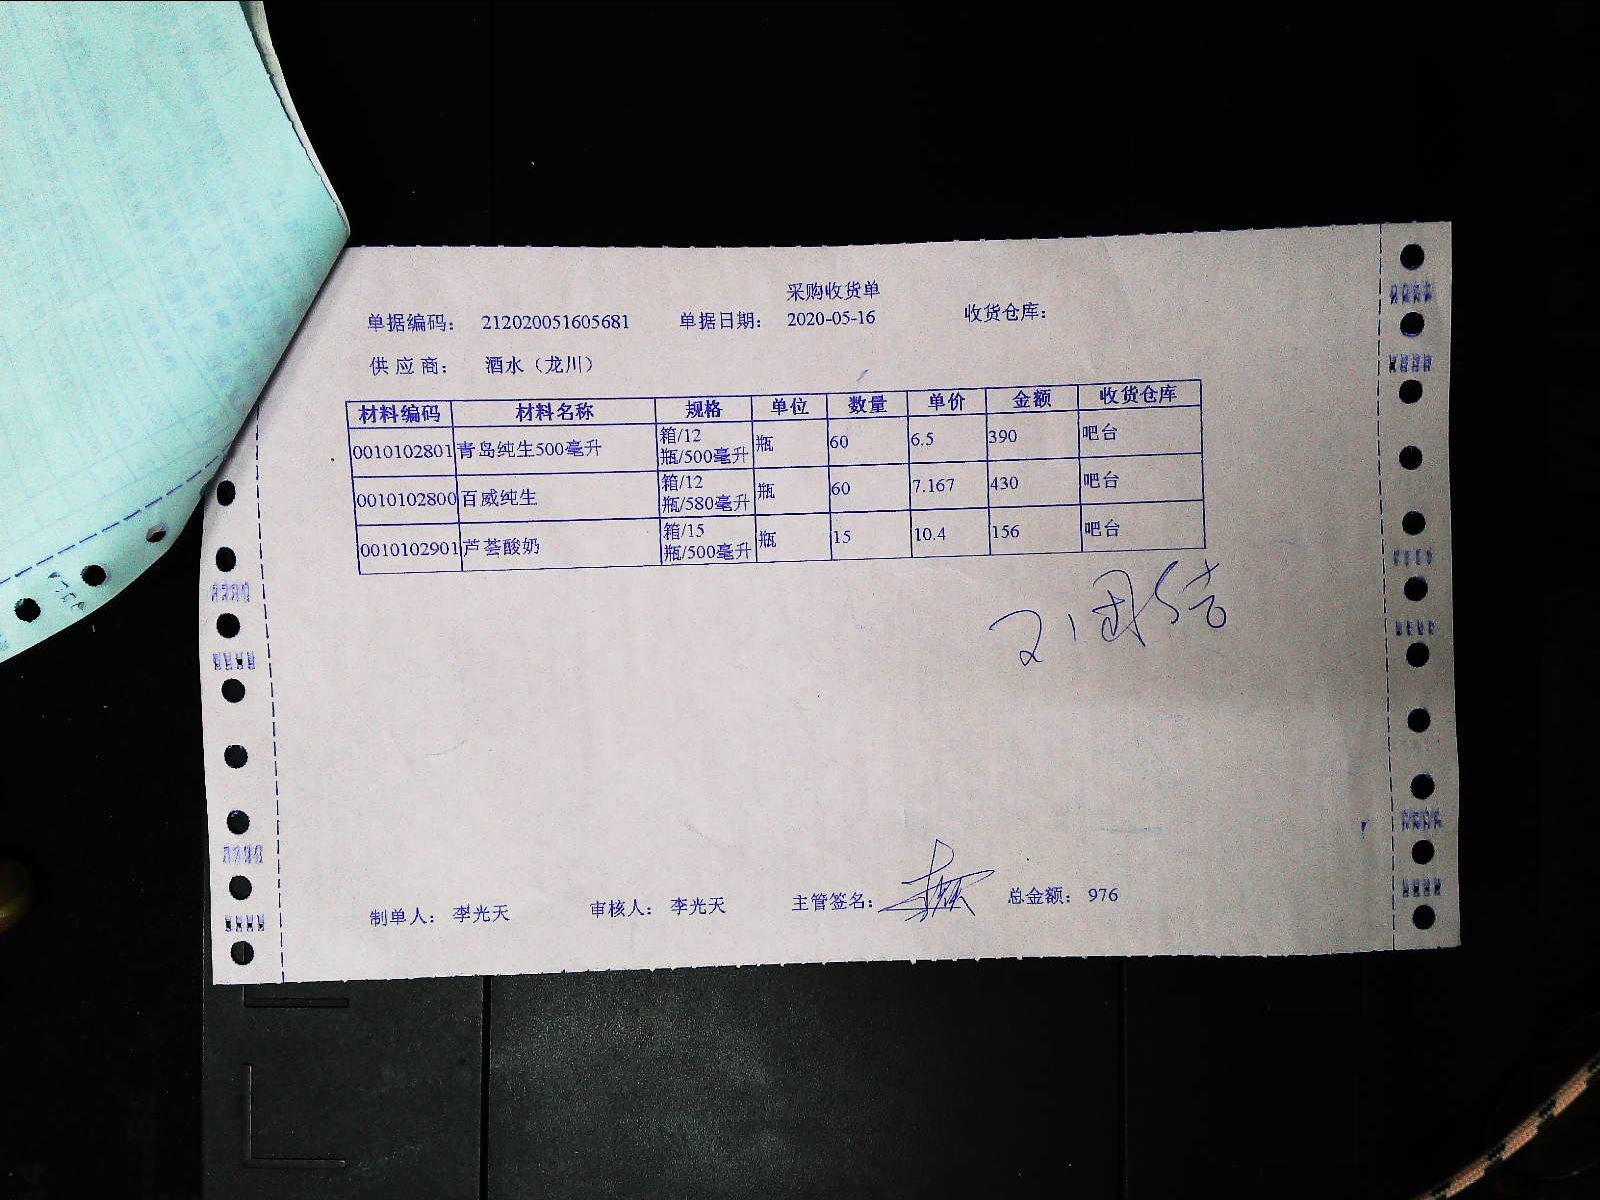 采购收货单
单据编码： 212020051605681 单据日期： 2020-05-16 收货仓库：
供应商： 酒水（龙川）
材料编码 材料名称 规格 单位 数量 单价 金额 收货仓库
0010102801 青岛纯生500毫升 箱/12瓶/500毫升 瓶 60 6.5 390 吧台
0010102800 百威纯生 箱/12瓶/580毫升 瓶 60 7.167 430 吧台
0010102901 芦荟酸奶 箱/15瓶/500毫升 瓶 15 10.4 156 吧台
刘团结
制单人： 李光天 审核人： 李光天 主管签名： 总金额： 976